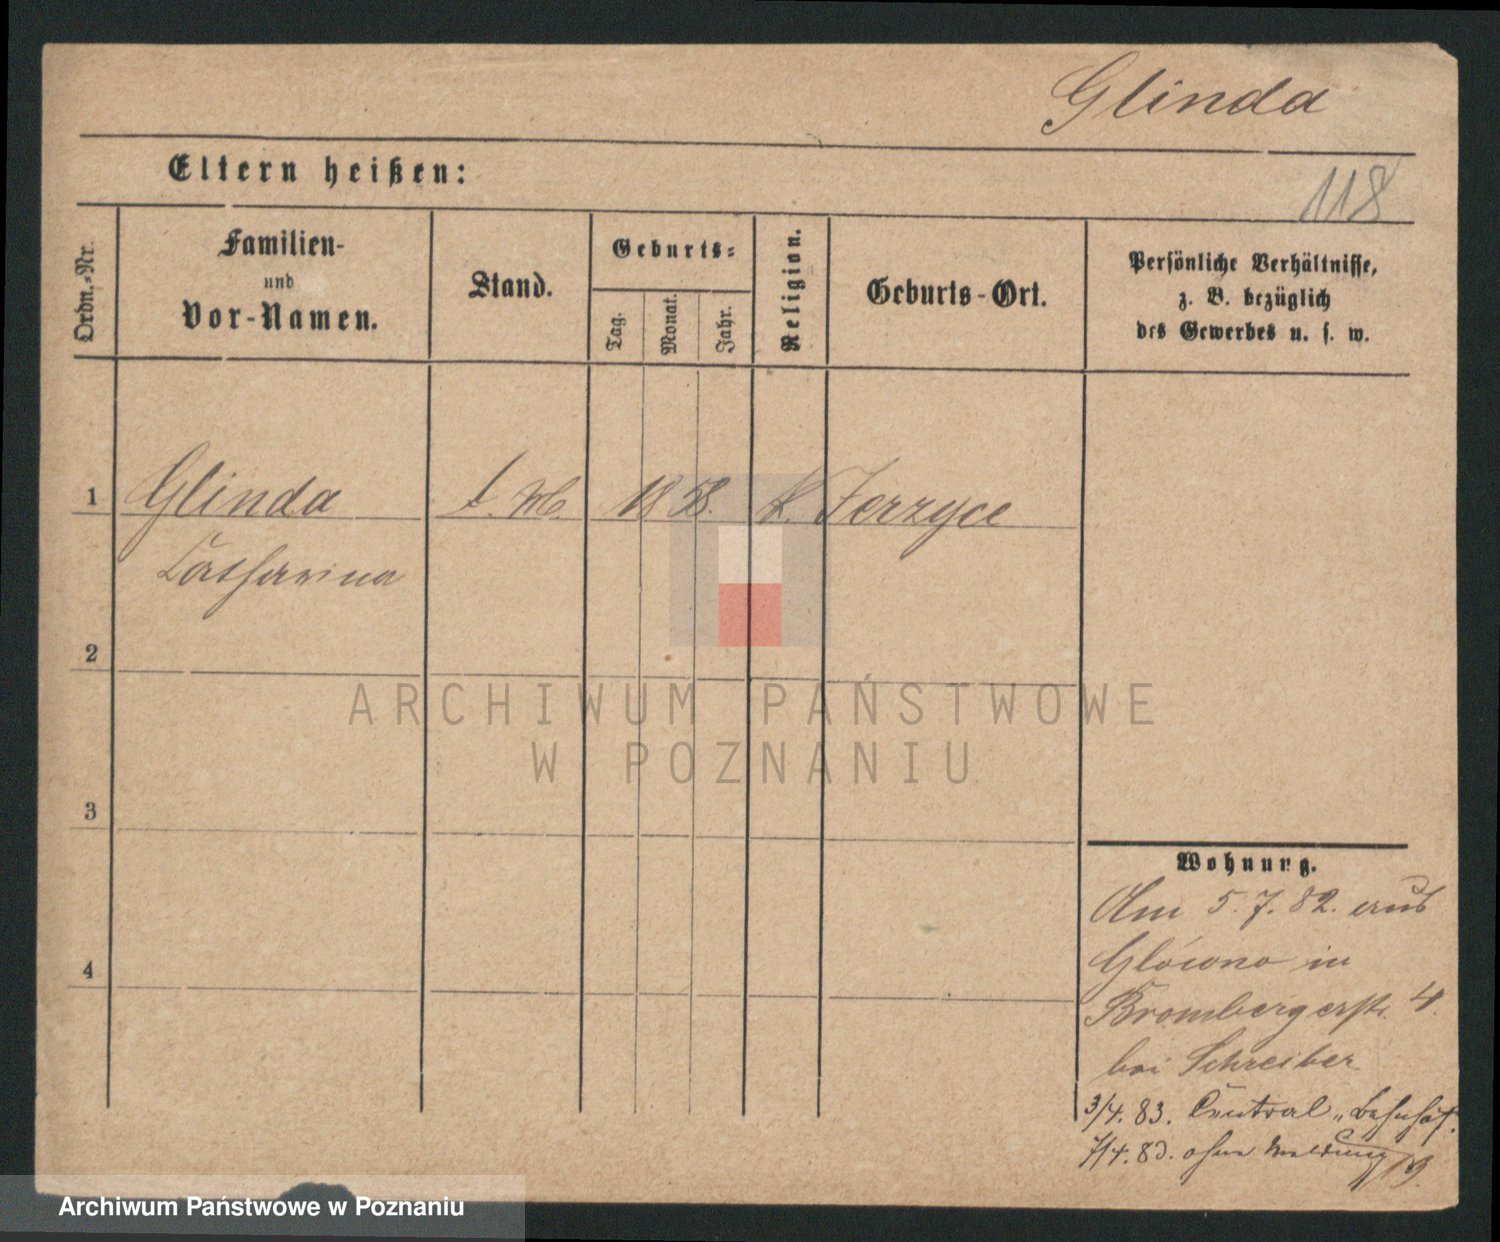 Glinda
Eltern heißen:
118
Ordn.-Nr.
Familien-
und
Vor-Namen.
Stand.
Geburts-
Tag.
Monat.
Jahr.
Religion.
Geburts-Ort.
Persönliche Verhältnisse,
z. B. bezüglich
des Gewerbes u. s. w.
1 Glinda 1858. k. Jerzyce
Catharina
2
3
4
ARCHIWUM PAŃSTWOWE
W POZNANIU
Wohnung.
Am 5. 7. 82. aus
Glówno in
Brombergerstr. 4.
bei Schreiber
3/4. 83. Central-Bahnhof.
7/4. 83. ohne Meldung
Archiwum Państwowe w Poznaniu